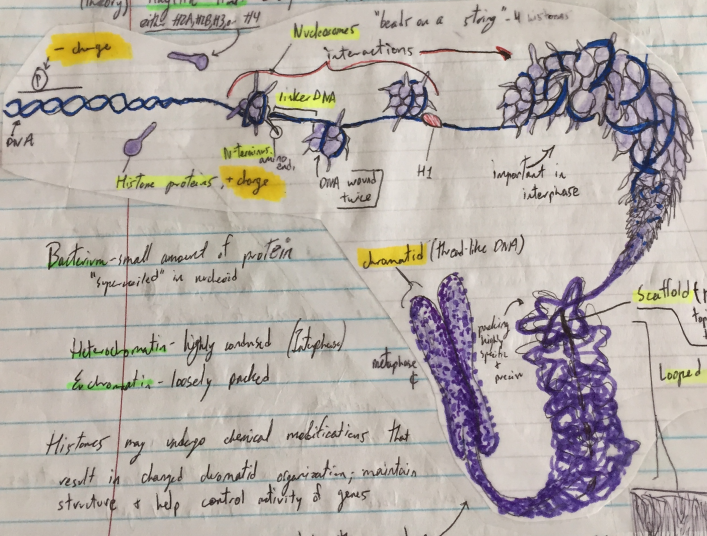 (theory)
either H2A, H2B, H3, or H4
Nucleosomes "beads on a string" - 4 histones
- charge
interactions
P
linker DNA
DNA
N-terminus
amino end,
H1
Histone proteins, + charge
DNA wound
twice
important in
interphase
Bacterium - small amount of protein
"supercoiled" in nucleoid
chromatid (thread-like DNA)
Scaffold
packing
highly
specific
+
precise
Heterochromatin - highly condensed (Interphase)
metaphase
Looped
Euchromatin - loosely packed
Histones may undergo chemical modifications that
result in changed chromatid organization; maintain
structure + help control activity of genes